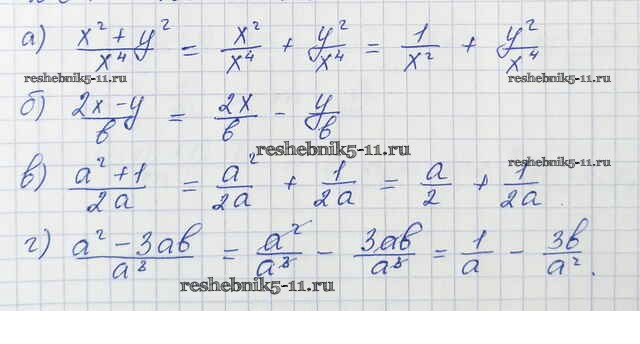 а) (x² + y²)/x⁴ = x²/x⁴ + y²/x⁴ = 1/x² + y²/x⁴
reshebnik5-11.ru reshebnik5-11.ru
б) (2x − y)/b = 2x/b − y/b
reshebnik5-11.ru reshebnik5-11.ru
в) (a² + 1)/2a = a²/2a + 1/2a = a/2 + 1/2a.
г) (a² − 3ab)/a³ = a²/a³ − 3ab/a³ = 1/a − 3b/a².
reshebnik5-11.ru